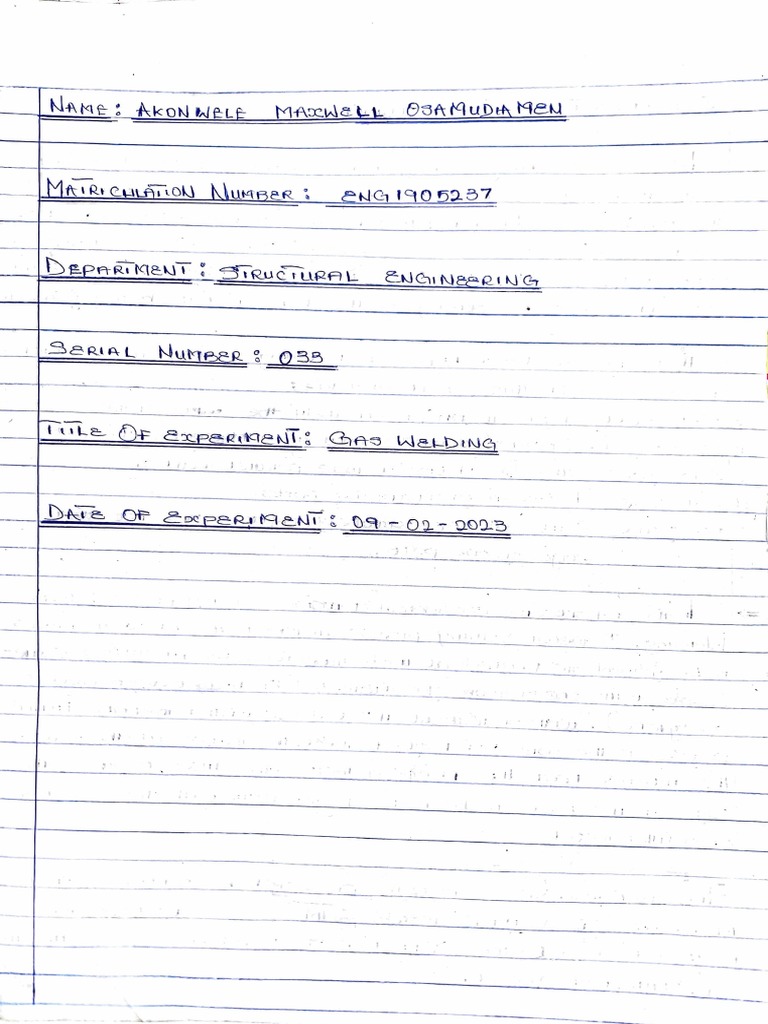 NAME: AKONWELE MAXWELL OSAMUDIAMEN
MATRICULATION NUMBER: ENG1905237
DEPARTMENT: STRUCTURAL ENGINEERING
SERIAL NUMBER: 033
TITLE OF EXPERIMENT: GAS WELDING
DATE OF EXPERIMENT: 09-02-2023